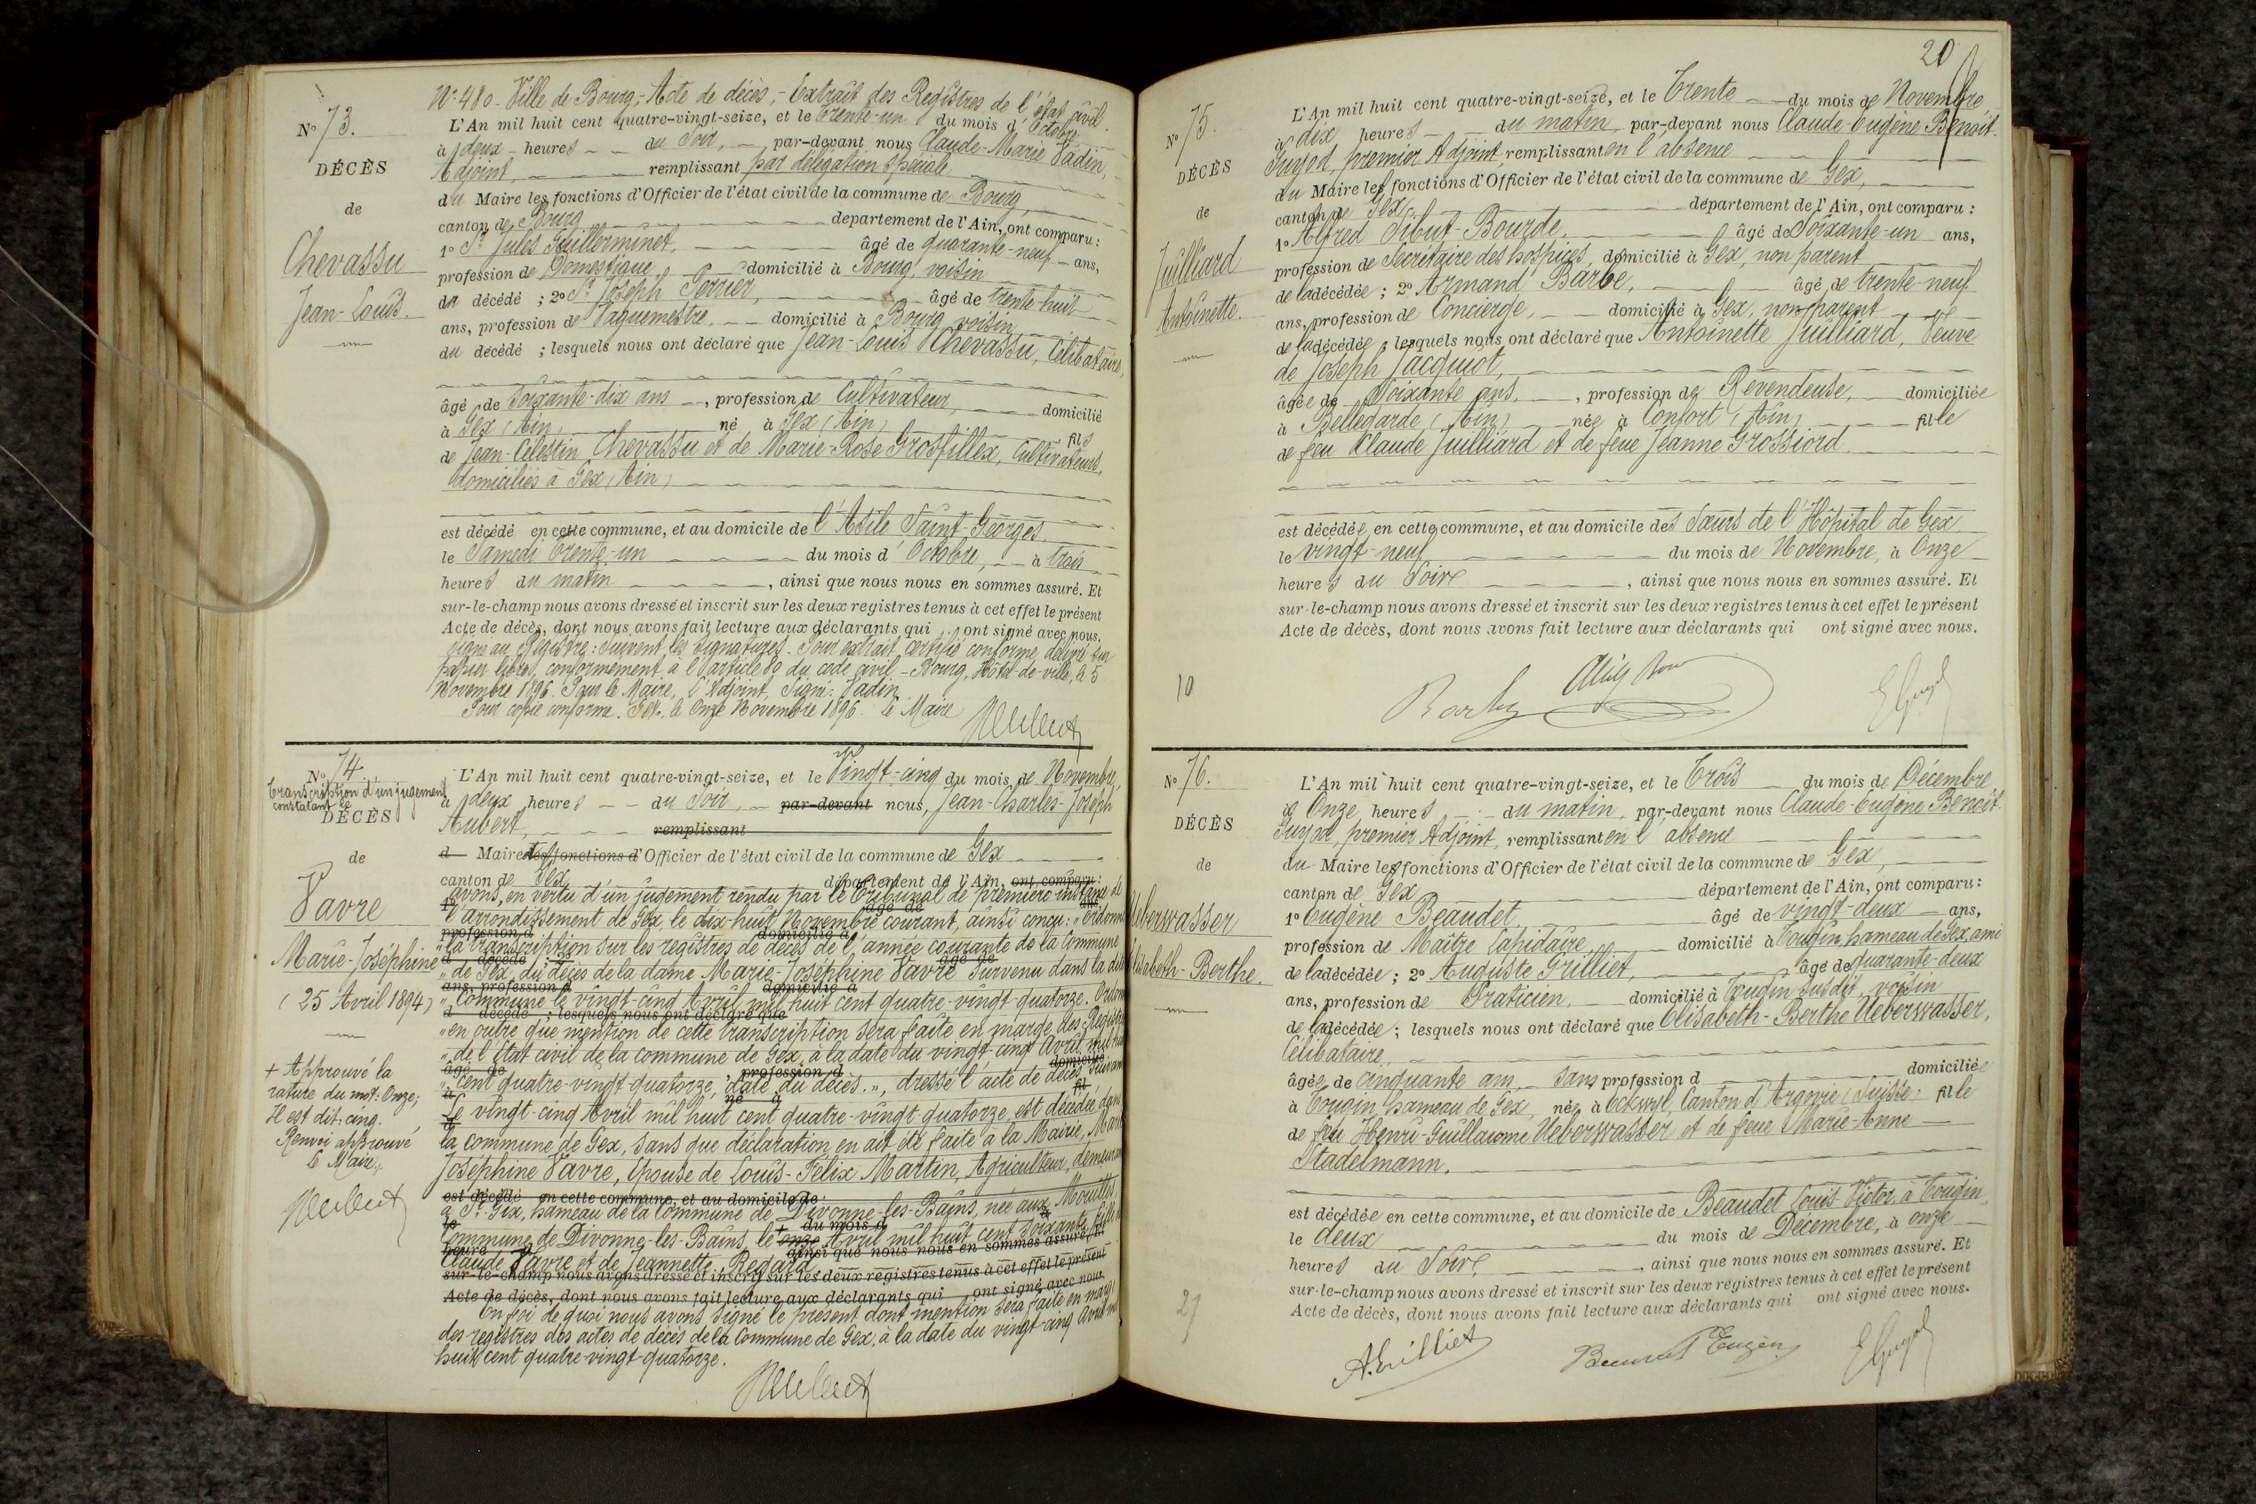 N° 73.
DÉCÈS
de
Chevassu
Jean-Louis.
N° 480. Ville de Bourg. - Acte de décès. - Extrait des Registres de l'état civil.
L'An mil huit cent quatre-vingt-seize, et le Trente-un du mois d'Octobre
à deux heures du Soir, par-devant nous Claude-Marie Vadin,
Adjoint remplissant par délégation spéciale
du Maire les fonctions d'Officier de l'état civil de la commune de Bourg,
canton de Bourg département de l'Ain, ont comparu :
1° Sr Jules Guillerminet, âgé de quarante-neuf ans,
profession de Domestique domicilié à Bourg, voisin
du décédé ; 2° Sr Joseph Perrier, âgé de trente-huit
ans, profession de Vaguemestre, domicilié à Bourg, voisin
du décédé ; lesquels nous ont déclaré que Jean-Louis Chevassu, Célibataire,
âgé de Soixante-dix ans, profession de Cultivateur, domicilié
à Gex (Ain) né à Gex (Ain) fils
de Jean-Célestin Chevassu et de Marie-Rose Grosfillex, Cultivateurs,
domiciliés à Gex (Ain)
est décédé en cette commune, et au domicile de l'Asile Saint-Georges
le Samedi Trente-un du mois d'Octobre, à trois
heures du matin, ainsi que nous nous en sommes assuré. Et
sur-le-champ nous avons dressé et inscrit sur les deux registres tenus à cet effet le présent
Acte de décès, dont nous avons fait lecture aux déclarants qui ont signé avec nous.
signé au Registre : Suivent les signatures. Pour extrait certifié conforme, délivré sur
papier libre, conformément à l'article 80 du code civil. - Bourg, Hôtel-de-ville, le 5
Novembre 1896. Pour le Maire, l'Adjoint, Signé : Vadin.
Pour copie conforme. Gex, le Onze Novembre 1896. Le Maire
N° 74.
Transcription d'un jugement
constatant le
DÉCÈS
de
Vavre
Marie-Joséphine
(25 Avril 1894)
+ Approuvé la
rature du mot : Onze ;
Il est dit : cinq.
Renvoi approuvé
Le Maire,
L'An mil huit cent quatre-vingt-seize, et le Vingt-cinq du mois de Novembre,
à deux heures du Soir, par-devant nous, Jean-Charles-Joseph
Aubert, remplissant
d Maire les fonctions d'Officier de l'état civil de la commune de Gex
canton de Gex département de l'Ain, ont comparu :
avons, en vertu d'un jugement rendu par le Tribunal de première instance de
l'arrondissement de Gex, le dix-huit Novembre courant, ainsi conçu : « Ordonne
« la transcription sur les registres de décès de l'année courante de la Commune
« de Gex, du décès de la dame Marie-Joséphine Vavre survenu dans la dite
« Commune le vingt-cinq Avril mil huit cent quatre-vingt quatorze. Ordonne
« en outre que mention de cette transcription sera faite en marge des Registres
« de l'État civil de la commune de Gex, à la date du vingt-cinq Avril mil huit
« cent quatre-vingt quatorze, date du décès. », dressé l'acte de décès suivant
Le vingt-cinq Avril mil huit cent quatre-vingt quatorze, est décédée dans
la commune de Gex, sans que déclaration en ait été faite à la Mairie, Marie
Joséphine Vavre, Épouse de Louis-Félix Martin, Agriculteur, demeurant
est décédé en cette commune, et au domicile de
à St-Gix, hameau de la Commune de Divonne-les-Bains, née aux Mouilles,
Commune de Divonne-les-Bains, le + onze Avril mil huit cent soixante, fille de
Claude Vavre et de Jeannette Regard.
sur-le-champ nous avons dressé et inscrit sur les deux registres tenus à cet effet le présent
Acte de décès, dont nous avons fait lecture aux déclarants qui ont signé avec nous.
En foi de quoi nous avons signé le présent dont mention sera faite en marge
des registres des actes de décès de la Commune de Gex, à la date du vingt-cinq Avril mil
huit cent quatre-vingt-quatorze.
20
N° 75.
DÉCÈS
de
Juilliard
Antoinette.
10
L'An mil huit cent quatre-vingt-seize, et le Trente du mois de Novembre
à dix heures du matin, par-devant nous Claude-Eugène-Benoit
Guyod, premier Adjoint, remplissant en l'absence
du Maire les fonctions d'Officier de l'état civil de la commune de Gex,
canton de Gex département de l'Ain, ont comparu :
1° Alfred Sibut-Bourde, âgé de Soixante-un ans,
profession de Secrétaire des hospices, domicilié à Gex, non parent
de la décédée ; 2° Armand Barbe, âgé de trente-neuf
ans, profession de Concierge, domicilié à Gex, non parent
de la décédée ; lesquels nous ont déclaré que Antoinette Juilliard, Veuve
de Joseph Jacquiot,
âgée de Soixante ans, profession de Revendeuse, domiciliée
à Bellegarde (Ain) née à Confort (Ain) fille
de feu Claude Juilliard et de feue Jeanne Grossiord.
est décédée en cette commune, et au domicile des Sœurs de l'Hôpital de Gex
le vingt-neuf du mois de Novembre, à Onze
heures du Soir, ainsi que nous nous en sommes assuré. Et
sur-le-champ nous avons dressé et inscrit sur les deux registres tenus à cet effet le présent
Acte de décès, dont nous avons fait lecture aux déclarants qui ont signé avec nous.
N° 76.
DÉCÈS
de
Ueberwasser
Elisabeth-Berthe.
L'An mil huit cent quatre-vingt-seize, et le Trois du mois de Décembre
à Onze heures du matin, par-devant nous Claude-Eugène Benoit
Guyod, premier Adjoint, remplissant en l'absence
du Maire les fonctions d'Officier de l'état civil de la commune de Gex,
canton de Gex département de l'Ain, ont comparu :
1° Eugène Beaudet âgé de vingt-deux ans,
profession de Maître Lapidaire domicilié à Tougin, hameau de Gex, ami
de la décédée ; 2° Auguste Grilliet, âgé de quarante-deux
ans, profession de Praticien, domicilié à Tougin susdit, voisin
de la décédée ; lesquels nous ont déclaré que Elisabeth-Berthe Ueberwasser,
Célibataire,
âgée de cinquante ans, Sans profession d domiciliée
à Tougin, hameau de Gex, née à Eckwyl, Canton d'Argovie (Suisse) fille
de feu Henri-Guillaume Ueberwasser et de feue Marie-Anne
Stadelmann,
est décédée en cette commune, et au domicile de Beaudet Louis Victor à Tougin,
le deux du mois de Décembre, à onze
heures du Soir, ainsi que nous nous en sommes assuré. Et
sur-le-champ nous avons dressé et inscrit sur les deux registres tenus à cet effet le présent
Acte de décès, dont nous avons fait lecture aux déclarants qui ont signé avec nous.
A. Grilliet